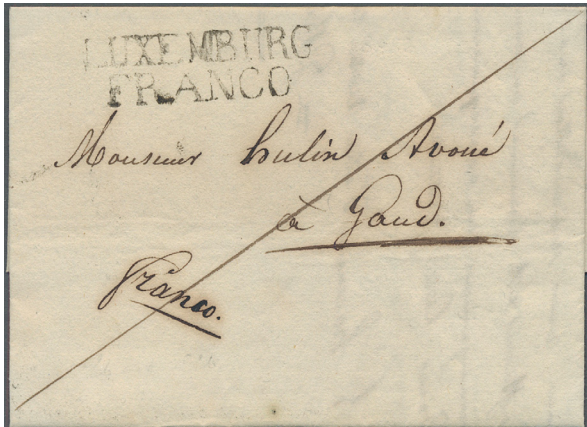 LUXEMBURG
FRANCO
Monsieur hulin Avoué
à Gand.
franco.